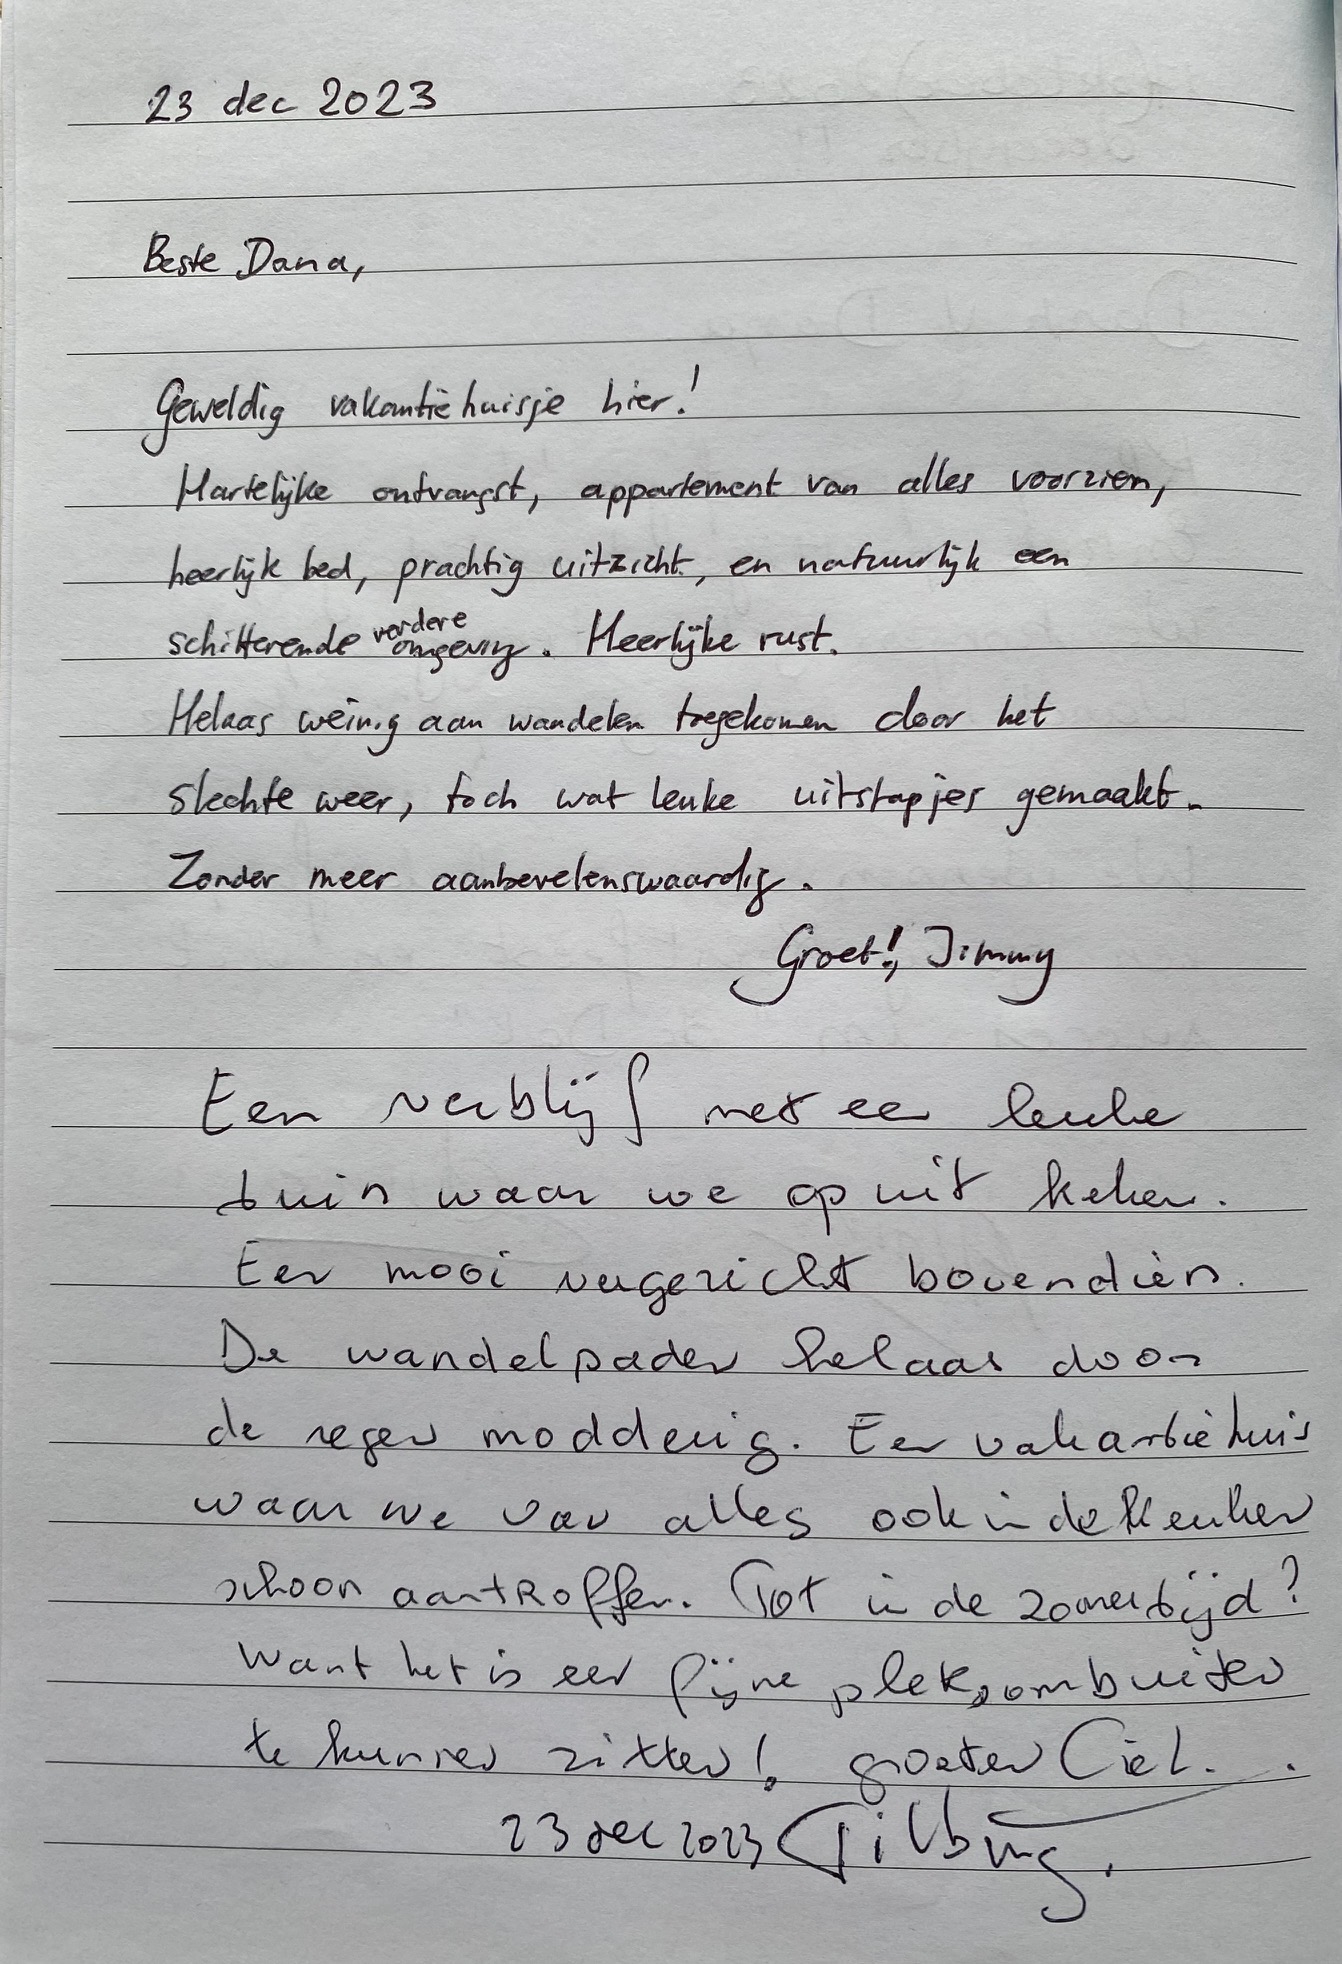 23 dec 2023
Beste Dana,
Geweldig vakantiehuisje hier!
Hartelijke ontvangst, appartement van alles voorzien,
heerlijk bed, prachtig uitzicht, en natuurlijk een
schitterende verdere omgeving. Heerlijke rust.
Helaas weinig aan wandelen toegekomen door het
slechte weer, toch wat leuke uitstapjes gemaakt.
Zonder meer aanbevelenswaardig.
Groet!, Jimmy
Een verblijf met een leuke
tuin waar we op uit keken.
Een mooi vergezicht bovendien.
De wandelpaden helaas door
de regen modderig. Een vakantiehuis
waar we van alles ook in de keuken
schoon aantroffen. Tot in de zomertijd?
Want het is een fijne plek, om buiten
te kunnen zitten! groeten Ciel.
23 dec 2023 Tilburg.